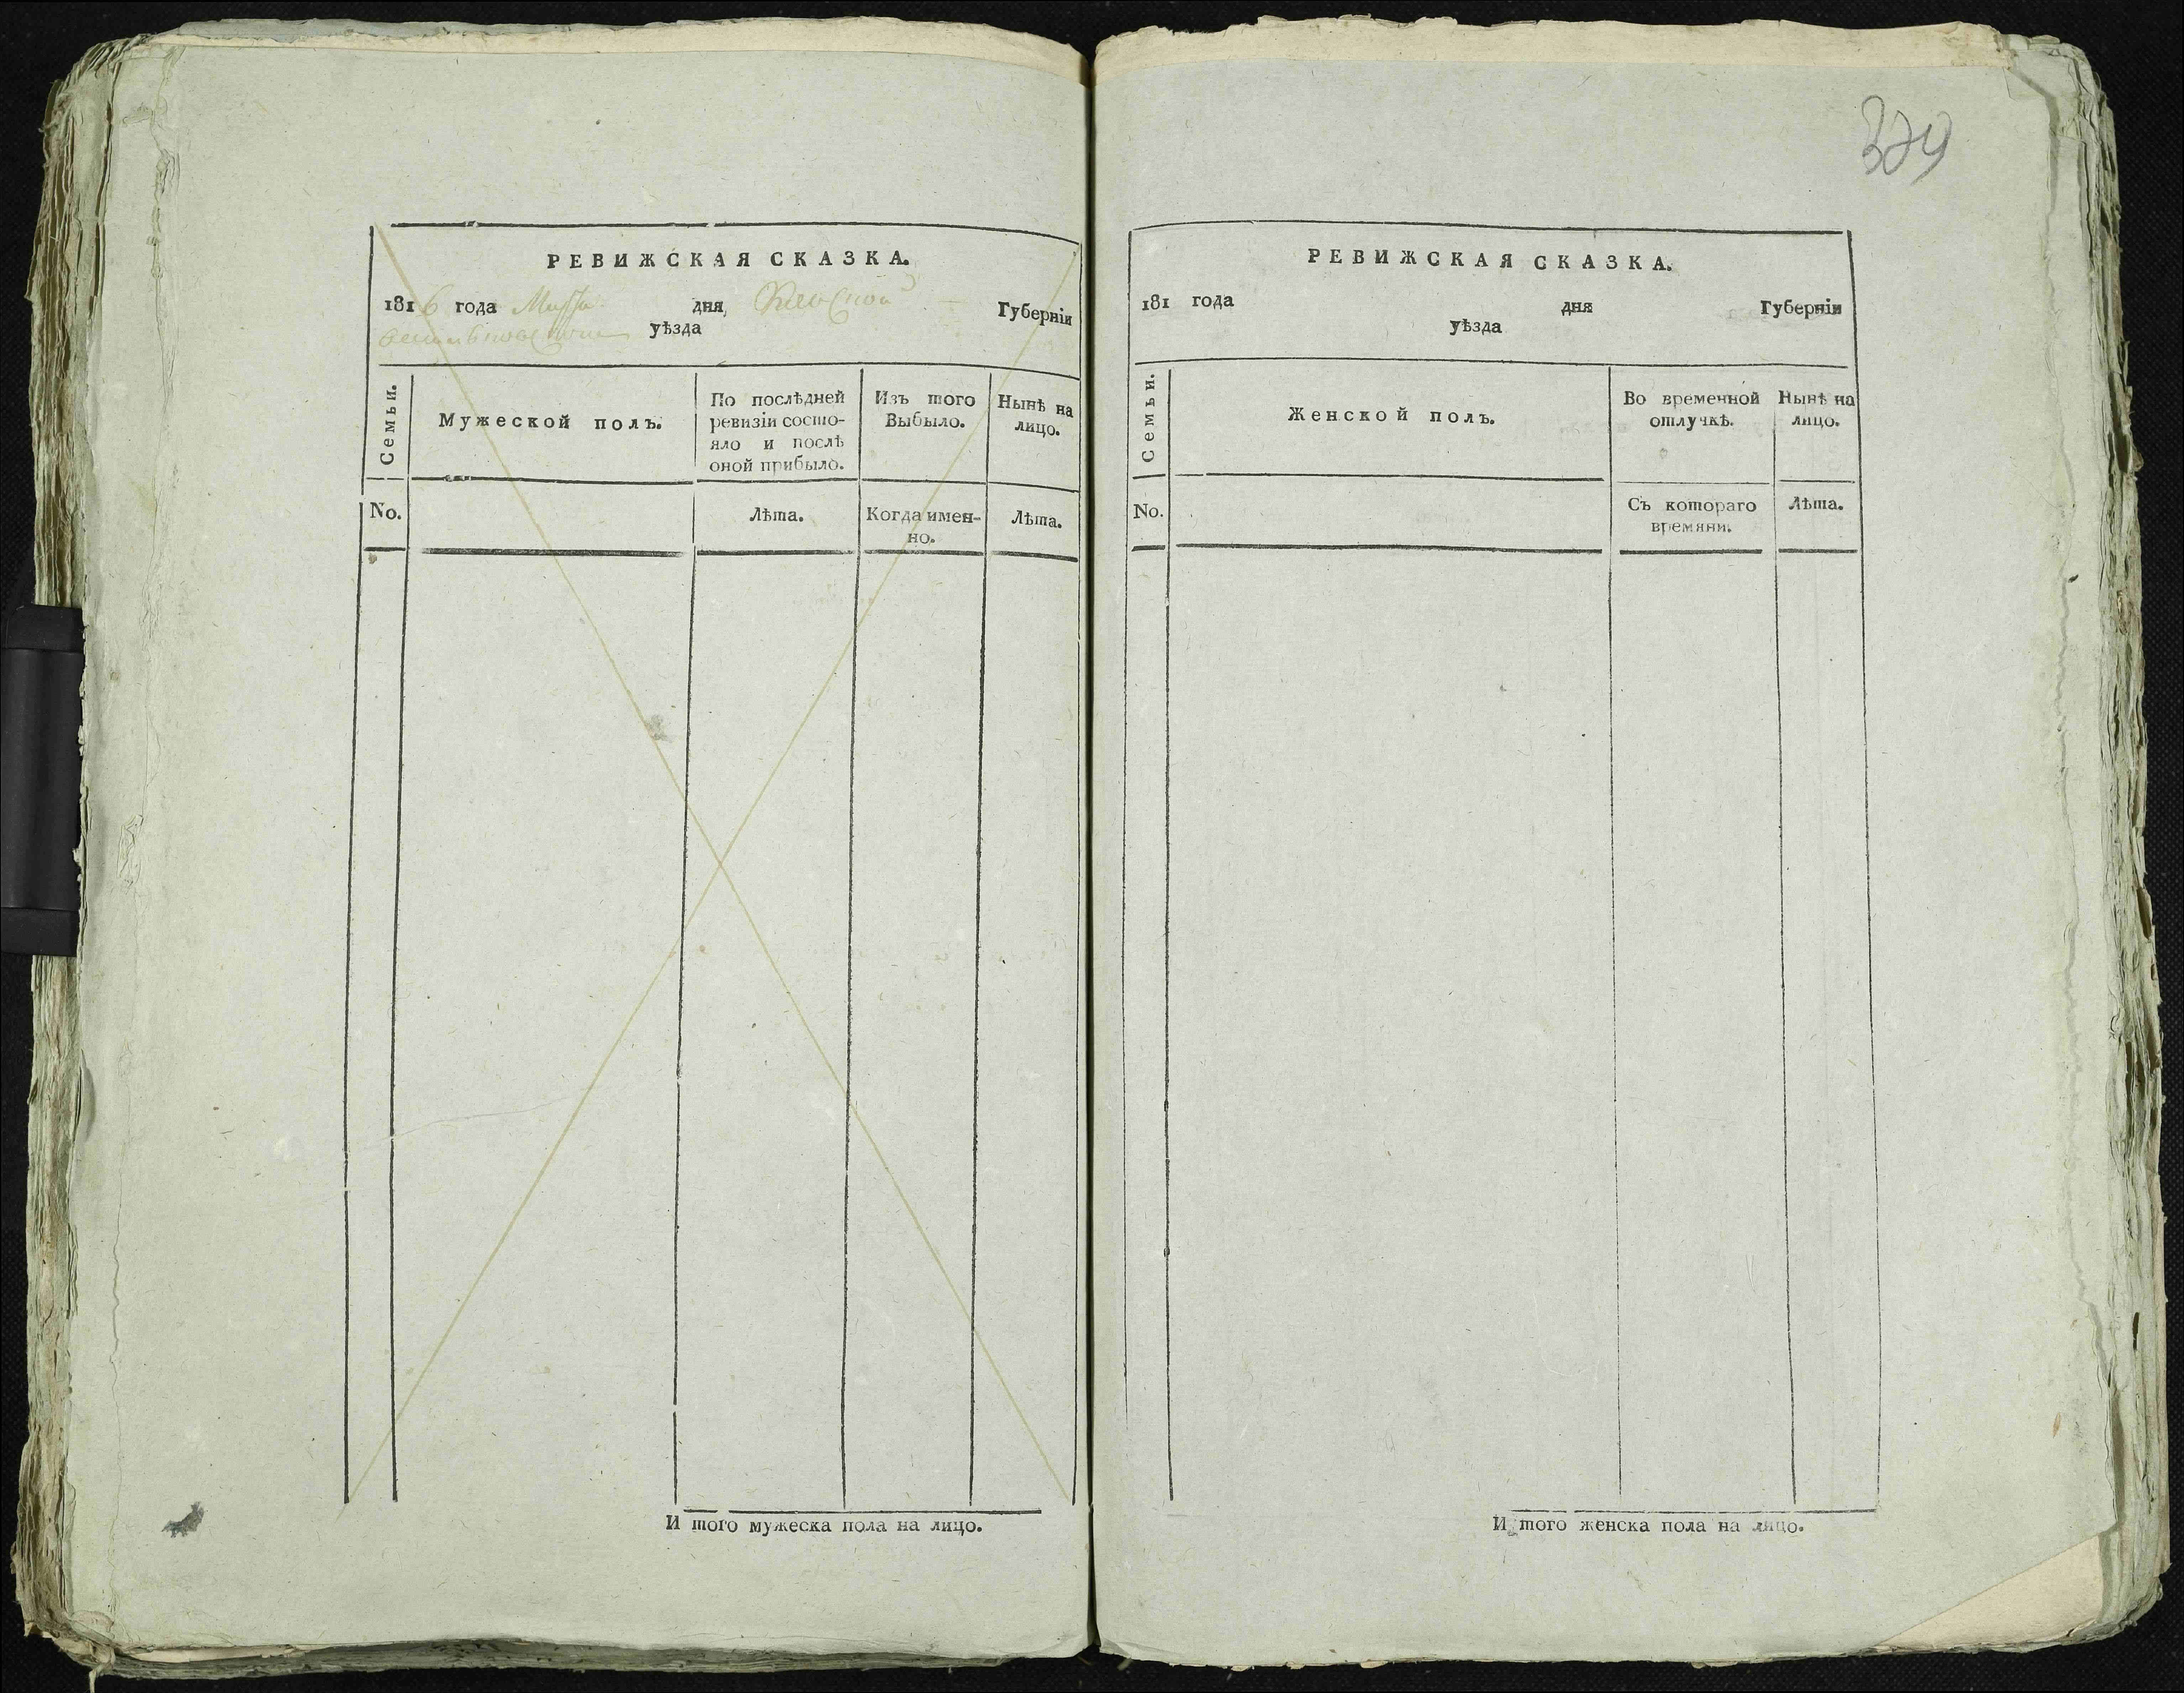 РЕВИЖСКАЯ СКАЗКА.
1816 года Марта дня Киевской Губерніи
уѣзда
Семьи.
Мужеской полъ.
По послѣдней
ревизіи состо-
яло и послѣ
оной прибыло.
Изъ того
Выбыло.
Нынѣ на
лицо.
No.
Лѣта.
Когда имен-
но.
Лѣта.
И того мужеска пола на лицо.
РЕВИЖСКАЯ СКАЗКА.
181 года дня Губерніи
уѣзда
Семьи.
Женской полъ.
Во временной
отлучкѣ.
Нынѣ на
лицо.
No.
Съ котораго
времяни.
Лѣта.
И того женска пола на лицо.